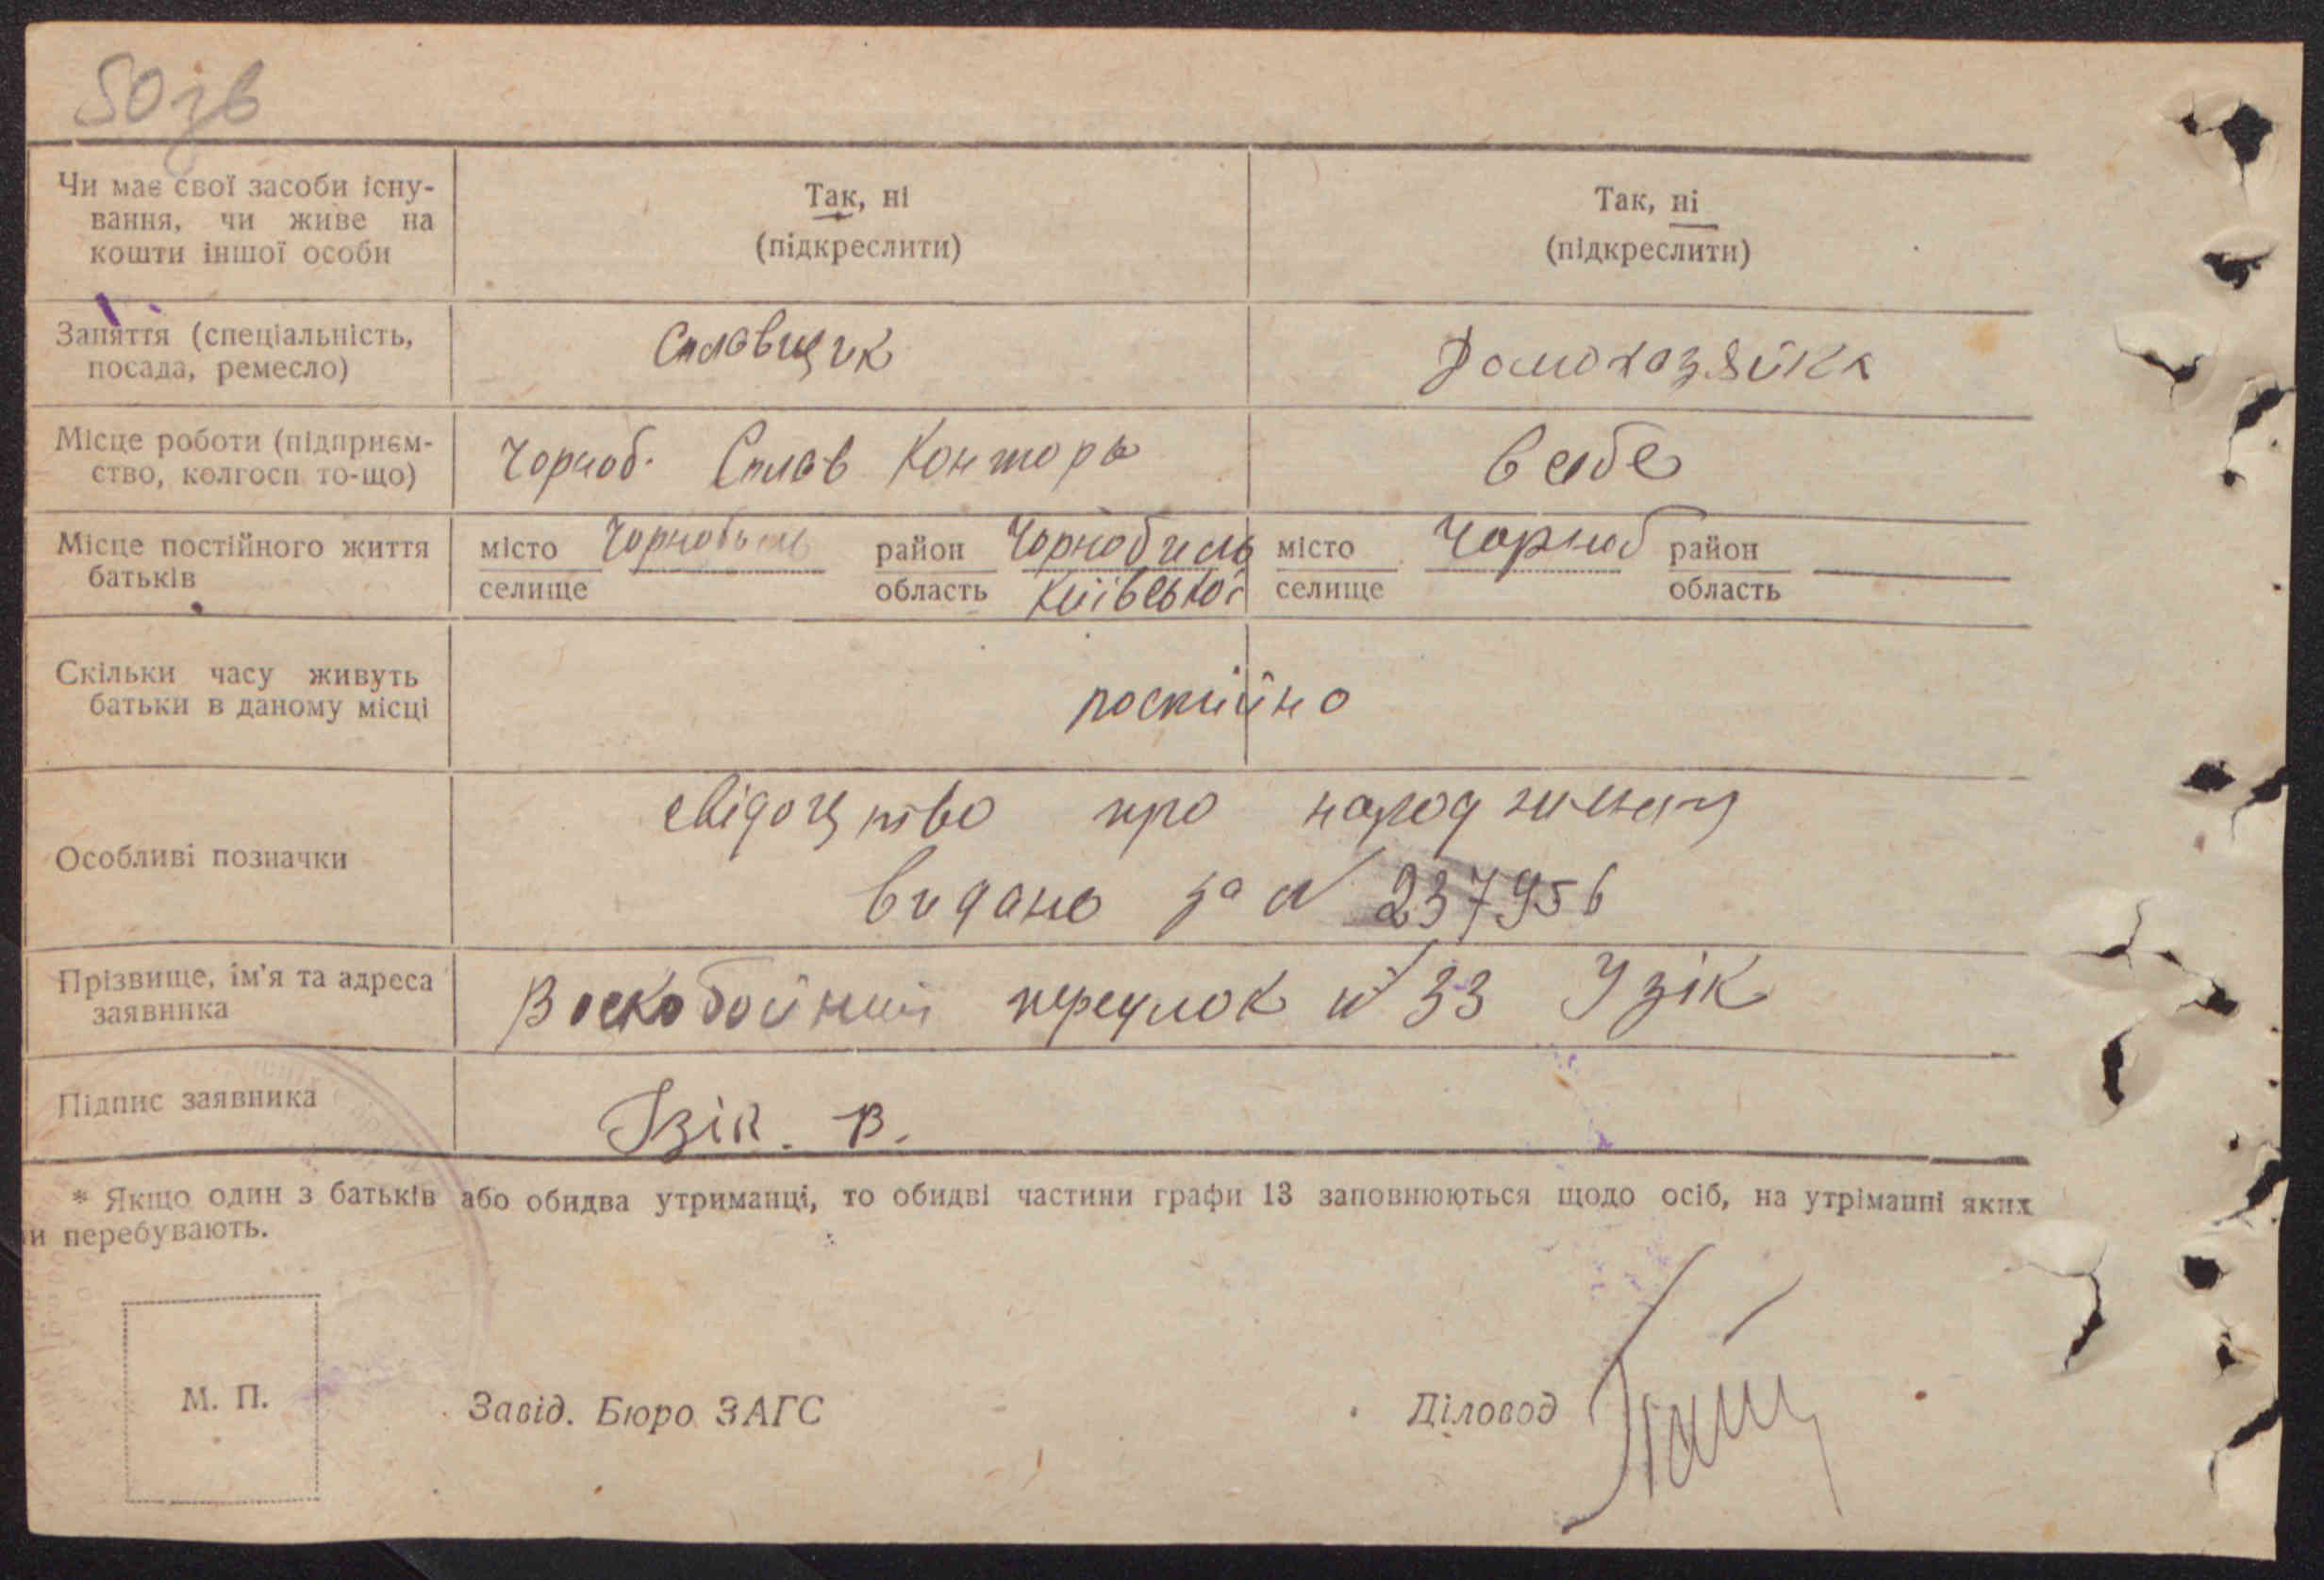 50зв
Чи має свої засоби існу-
вання, чи живе на
кошти іншої особи
Так, ні
(підкреслити)
Так, ні
(підкреслити)
Заняття (спеціальність,
посада, ремесло)
Сплавщик
Домохазяйка
Місце роботи (підприєм-
ство, колгосп то-що)
Чорноб. Сплав Контора
в себе
Місце постійного життя
батьків
місто Чорнобыль район Чорнобиль
селище область Київської
місто Чорноб район
селище область
Скільки часу живуть
батьки в даному місці
постійно
Особливі позначки
свідоцтво про народження
видано за № 237956
Прізвище, ім'я та адреса
заявника
Воскобойний переулок № 33 Узік
Підпис заявника
Ізік. В.
* Якщо один з батьків або обидва утриманці, то обидві частини графи 13 заповнюються щодо осіб, на утріманні яких
и перебувають.
М. П.
Завід. Бюро ЗАГС
Діловод